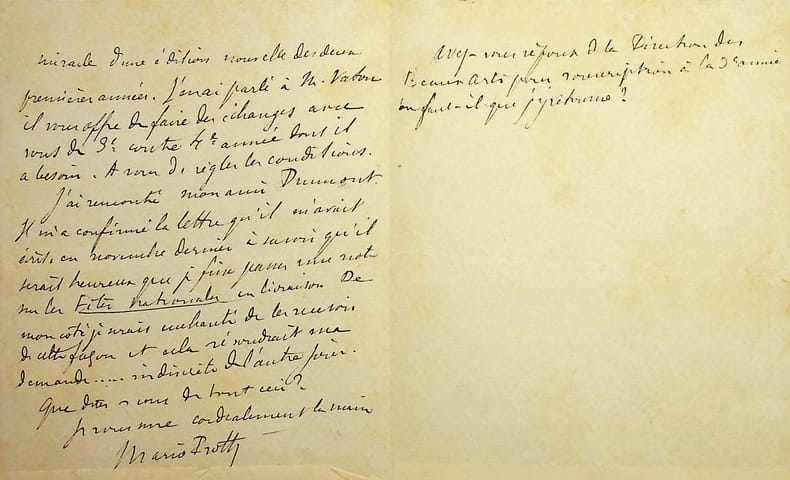 miracle d'une édition nouvelle des deux
premières années. J'en ai parlé à M. Vaton
il vous offre de faire des échanges avec
vous de 3e contre 4e année dont il
a besoin. A vous de régler les conditions.
J'ai remonté mon ami Drumont.
Il m'a confirmé la lettre qu'il m'avait
écrite en novembre dernier à savoir qu'il
serait heureux que je fisse passer une note
sur les Fêtes nationales en livraison De
mon côté je serais enchanté de les recevoir
de cette façon et cela résoudrait ma
demande..... indiscrète de l'autre jour.
Que dites-vous de tout ceci?
Je vous serre cordialement la main
Mario Proth
Avez-vous réponse de la Direction des
Beaux Arts pour souscription à la 3e année
ou faut-il que j'y retourne?